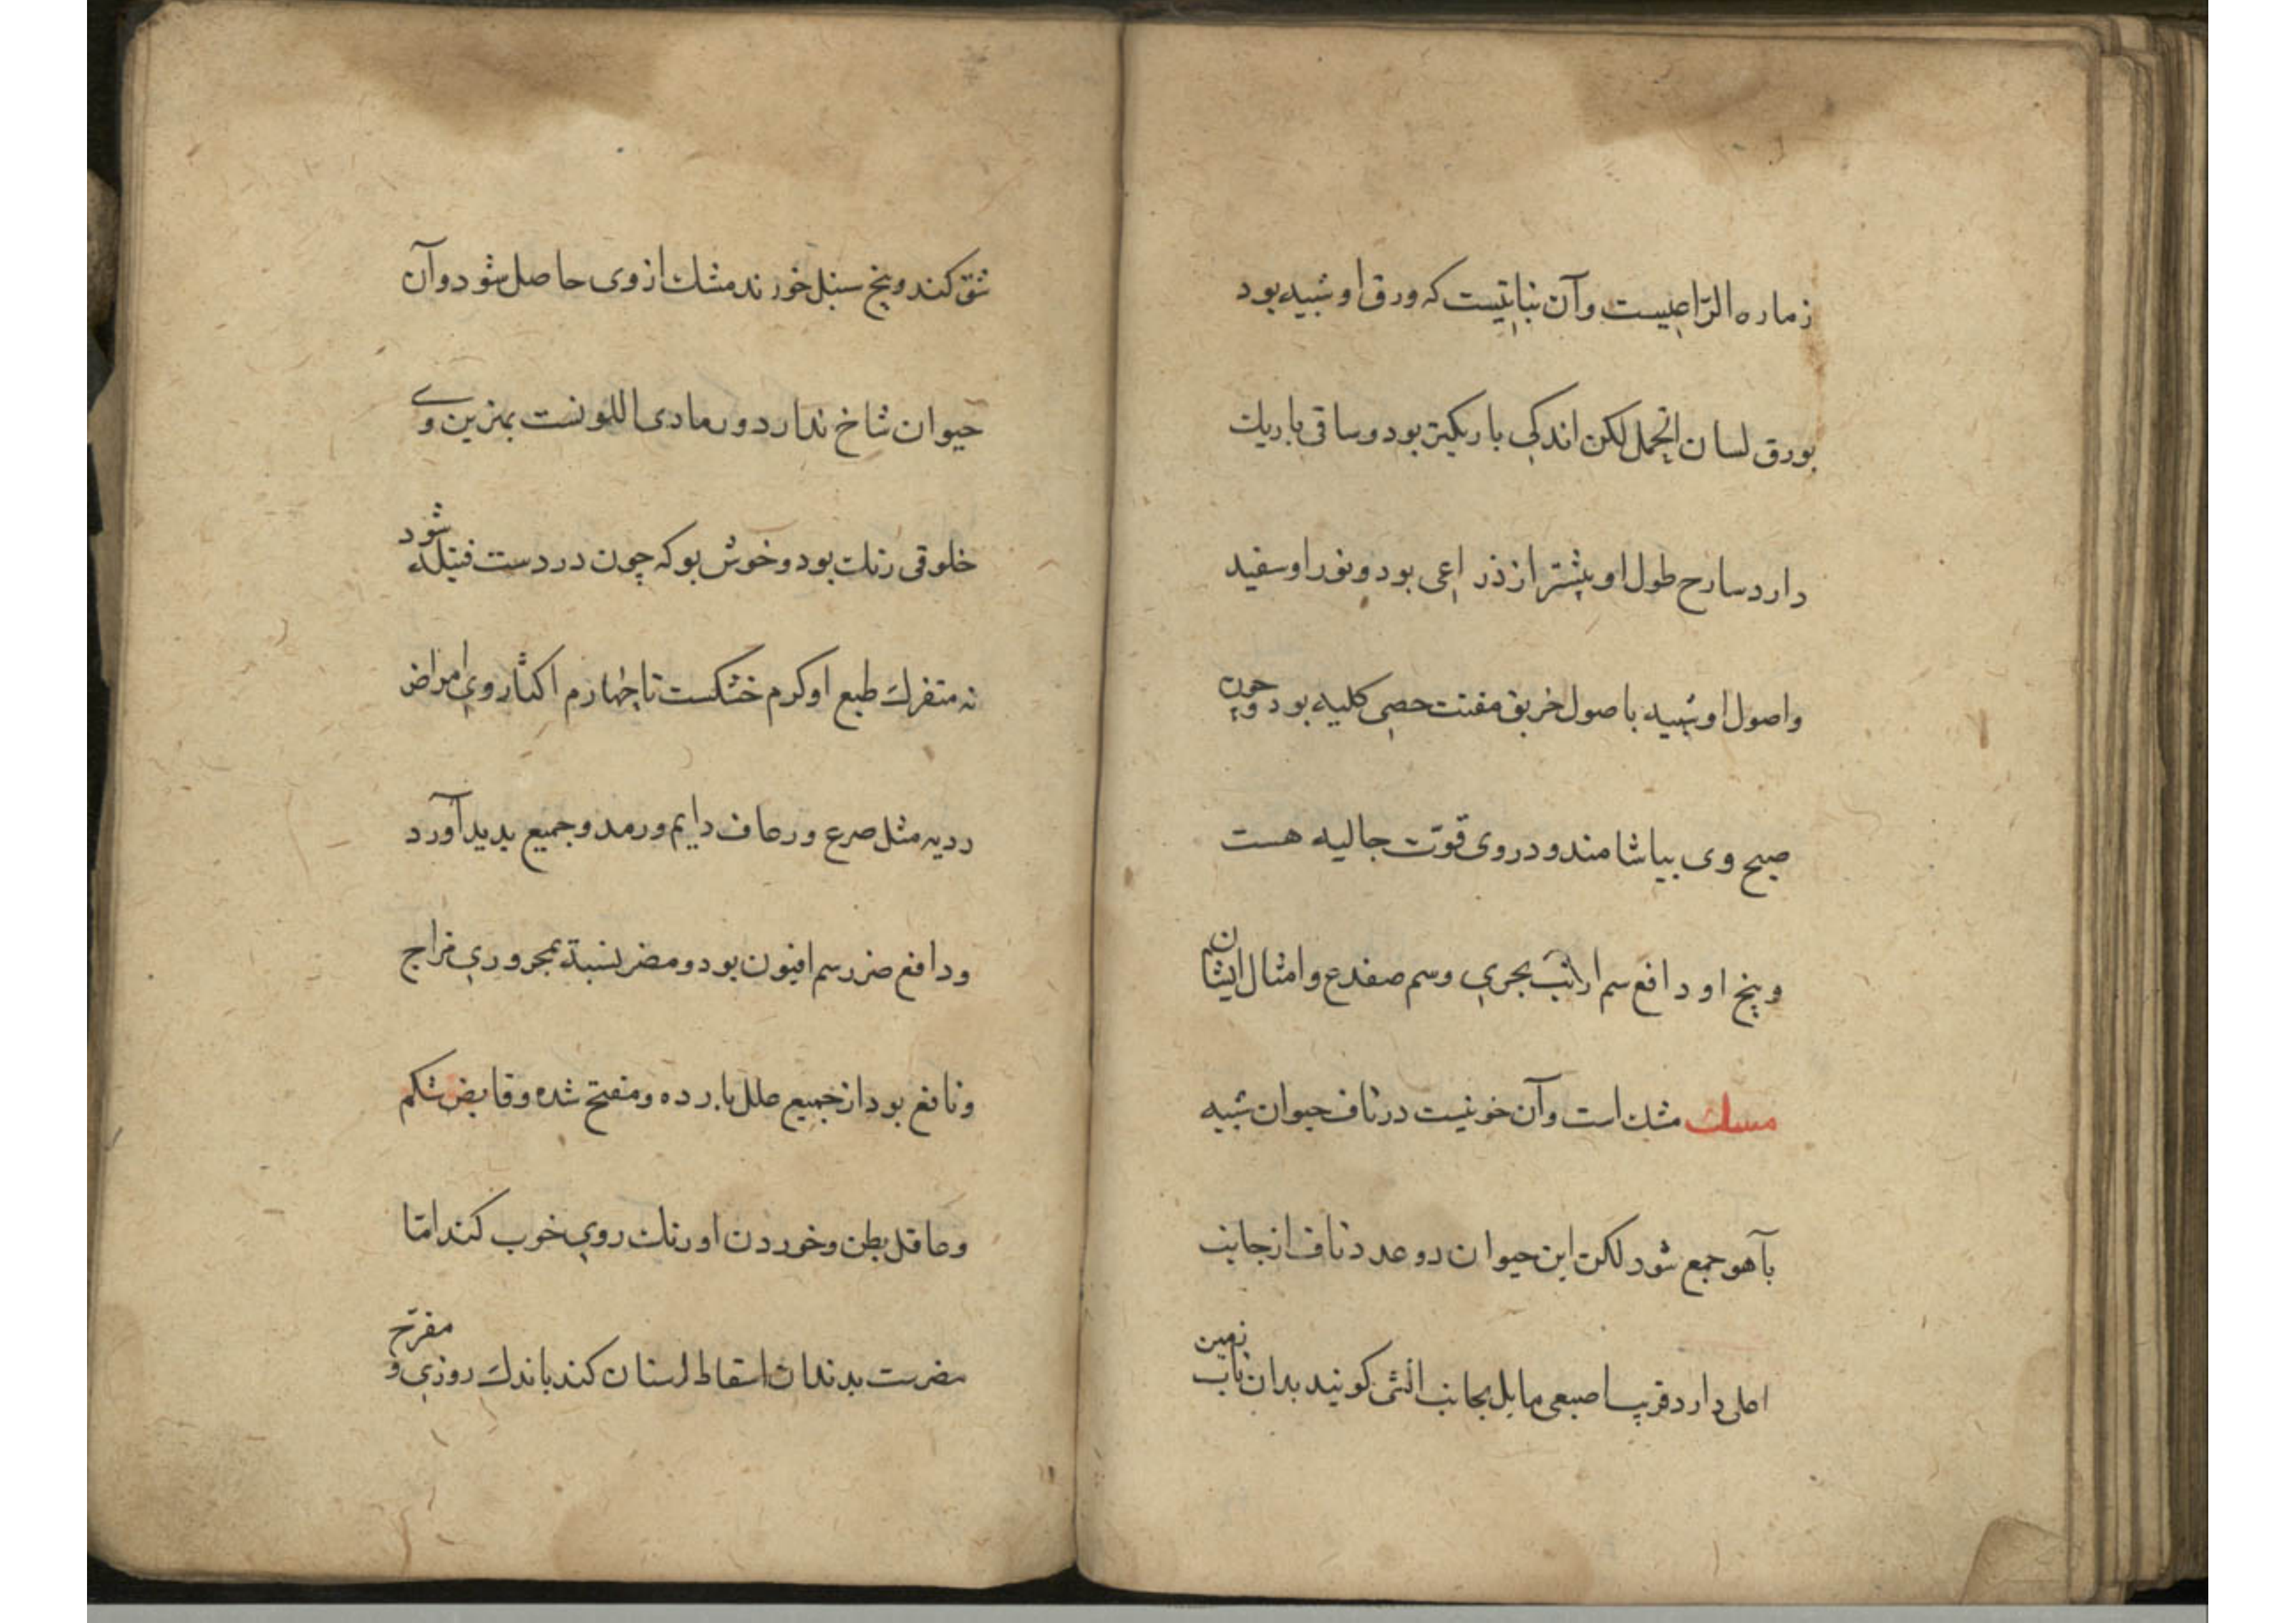 زماره الراعیست وآن نباتیست که ورق او شبیه بود
بورق لسان الحمل لکن اندکی باریکتر بود وساقی باریك
دارد سارح طول او بیشتر از ذراعی بود ونور او سفید
واصول او شبیه باصول خربق مفتت حصی کلیه بود وچون
صبح وی بیاشامند ودر وی قوت جالیه هست
وبیخ او دافع سم ارانب بحری وسم صفدع وامثال ایشان
مسك مشك است وآن خونیست در ناف حیوان شبیه
بآهو جمع شود لکن این حیوان دو عدد ناف از جانب
اعلی دارد قریب اصبعی مایل بجانب انثی کویند بدان ناب زمین
شق کند وبیخ سنبل خورند مشك از وی حاصل شود وآن
حیوان شاخ ندارد ورمادی اللونست بهترین وی
خلوقی رنك بود وخوش بو که چون در دست فتیله شود
نه متفرك طبع او کرم خشکست تا چهارم اکثار وی امراض
ردیه مثل صرع ورعاف دایم ورمد وجمیع بدید آورد
ودافع ضرر سم افیون بود ومضر بنسبة بمحروری مزاج
ونافع بود از جمیع علل بارده ومفتح شده وقابض شکم
وعاقل بطن وخوردن او رنك روی خوب کند اما
مضرست بدندان اسقاط اسنان کند باندك روزی و مفرح